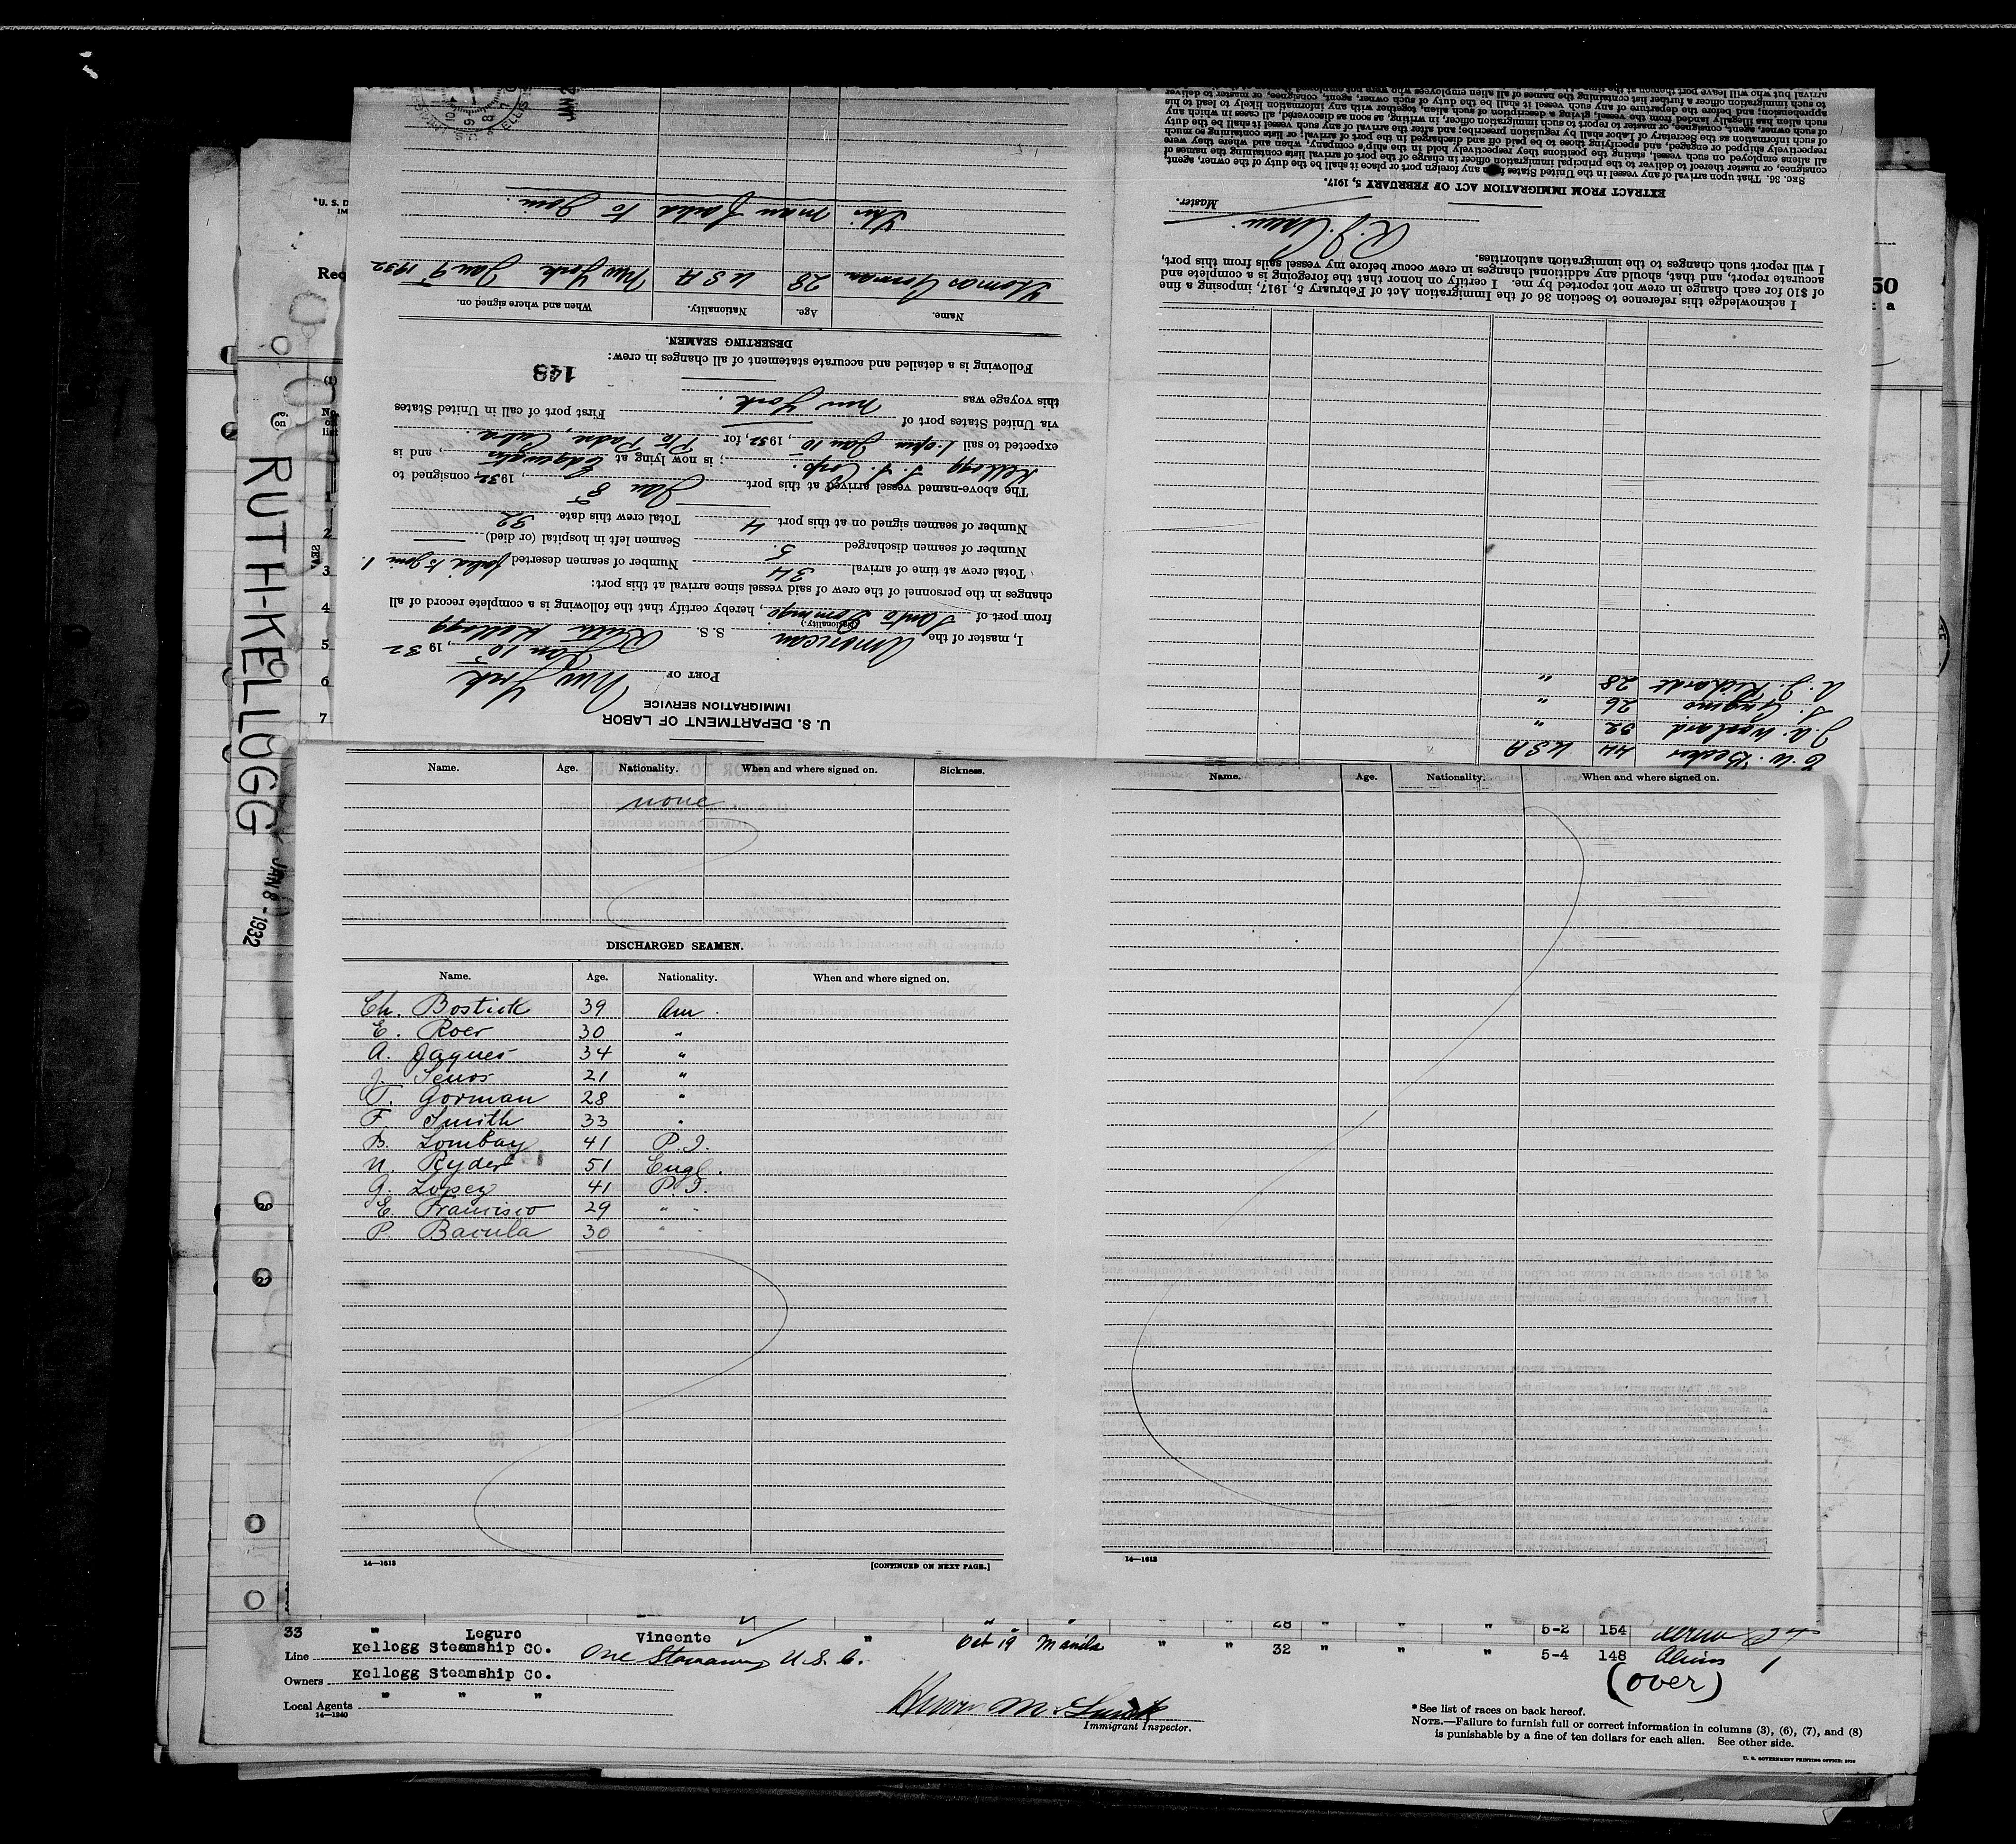 RUTH-KELLOGG JAN 8 - 1932
50
U. S. DEPARTMENT OF LABOR
IMMIGRATION SERVICE
PORT OF New York
Jan 10, 1932
I, master of the American S. S. Ruth Kellogg
(Nationality.)
from port of Santo Domingo, hereby certify that the following is a complete record of all
changes in the personnel of the crew of said vessel since arrival at this port:
Total crew at time of arrival 34 Number of seamen deserted failed to join 1.
Number of seamen discharged 5. Seamen left in hospital (or died)
Number of seamen signed on at this port 4 Total crew this date 32
The above-named vessel arrived at this port Jan 8, 1932, consigned to
Kellogg S. S. Corp.; is now lying at Edgewater, and is
expected to sail 1 open Jan 10, 1932 for Pto Padre, Cuba.
via United States port of First port of call in United States
this voyage was New York.
148
Following is a detailed and accurate statement of all changes in crew:
DESERTING SEAMEN.
Name. Age. Nationality. When and where signed on.
Thomas Gorman 28 USA New York Jan 9 1932
This man failed to join.
C. W. Becker 44 USA
J. W. 32 "
S. 26 "
A. J. Richardt 28 "
I acknowledge this reference to Section 36 of the Immigration Act of February 5, 1917, imposing a fine
of $10 for each change in crew not reported by me. I certify on honor that the foregoing is a complete and
accurate report, and that, should any additional changes in crew occur before my vessel sails from this port,
I will report such changes to the immigration authorities.
Master.
EXTRACT FROM IMMIGRATION ACT OF FEBRUARY 5, 1917.
SEC. 36. That upon arrival of any vessel in the United States from any foreign port or place it shall be the duty of the owner, agent,
consignee, or master thereof to deliver to the principal immigration officer in charge of the port of arrival lists containing the names of
all aliens employed on such vessel, stating the positions they respectively hold in the ship's company, when and where they were
respectively shipped or engaged, and specifying those to be paid off and discharged in the port of arrival; or lists containing so much
of such information as the Secretary of Labor shall by regulation prescribe; and after the arrival of any such vessel it shall be the duty
of such owner, agent, consignee, or master to report to such immigration officer, in writing, as soon as discovered, all cases in which any
such alien has illegally landed from the vessel, giving a description of such alien, together with any information likely to lead to his
apprehension; and before the departure of any such vessel it shall be the duty of such owner, agent, consignee, or master to deliver
to such immigration officer a further list containing the names of all alien employees who were not employed
arrival but who will leave port thereon at the time
Name. Age. Nationality. When and where signed on. Sickness.
none
DISCHARGED SEAMEN.
Name. Age. Nationality. When and where signed on.
Ch. Bostick 39 Am.
E. Roer 30 "
A. Jaques 34 "
J. Senos 21 "
T. Gorman 28 "
F. Smith 33 "
B. Lombay 41 P.I.
N. Ryder 51 Engl.
G. Lopez 41 P.I.
E. Francisco 29 " "
P. Bacula 30 " "
14—1613 [CONTINUED ON NEXT PAGE.]
Name. Age. Nationality. When and where signed on.
14—1613
28 " " "
33 " Leguro Vincente " Oct 19 Manila " " 32 " " " 5-2 154
5-4 148
Line Kellogg Steamship Co. One Stowaway U.S.C.
Owners Kellogg Steamship Co.
Local Agents " " "
14—1240
(over)
Immigrant Inspector.
* See list of races on back hereof.
NOTE.—Failure to furnish full or correct information in columns (3), (6), (7), and (8)
is punishable by a fine of ten dollars for each alien. See other side.
U. S. GOVERNMENT PRINTING OFFICE: 1930